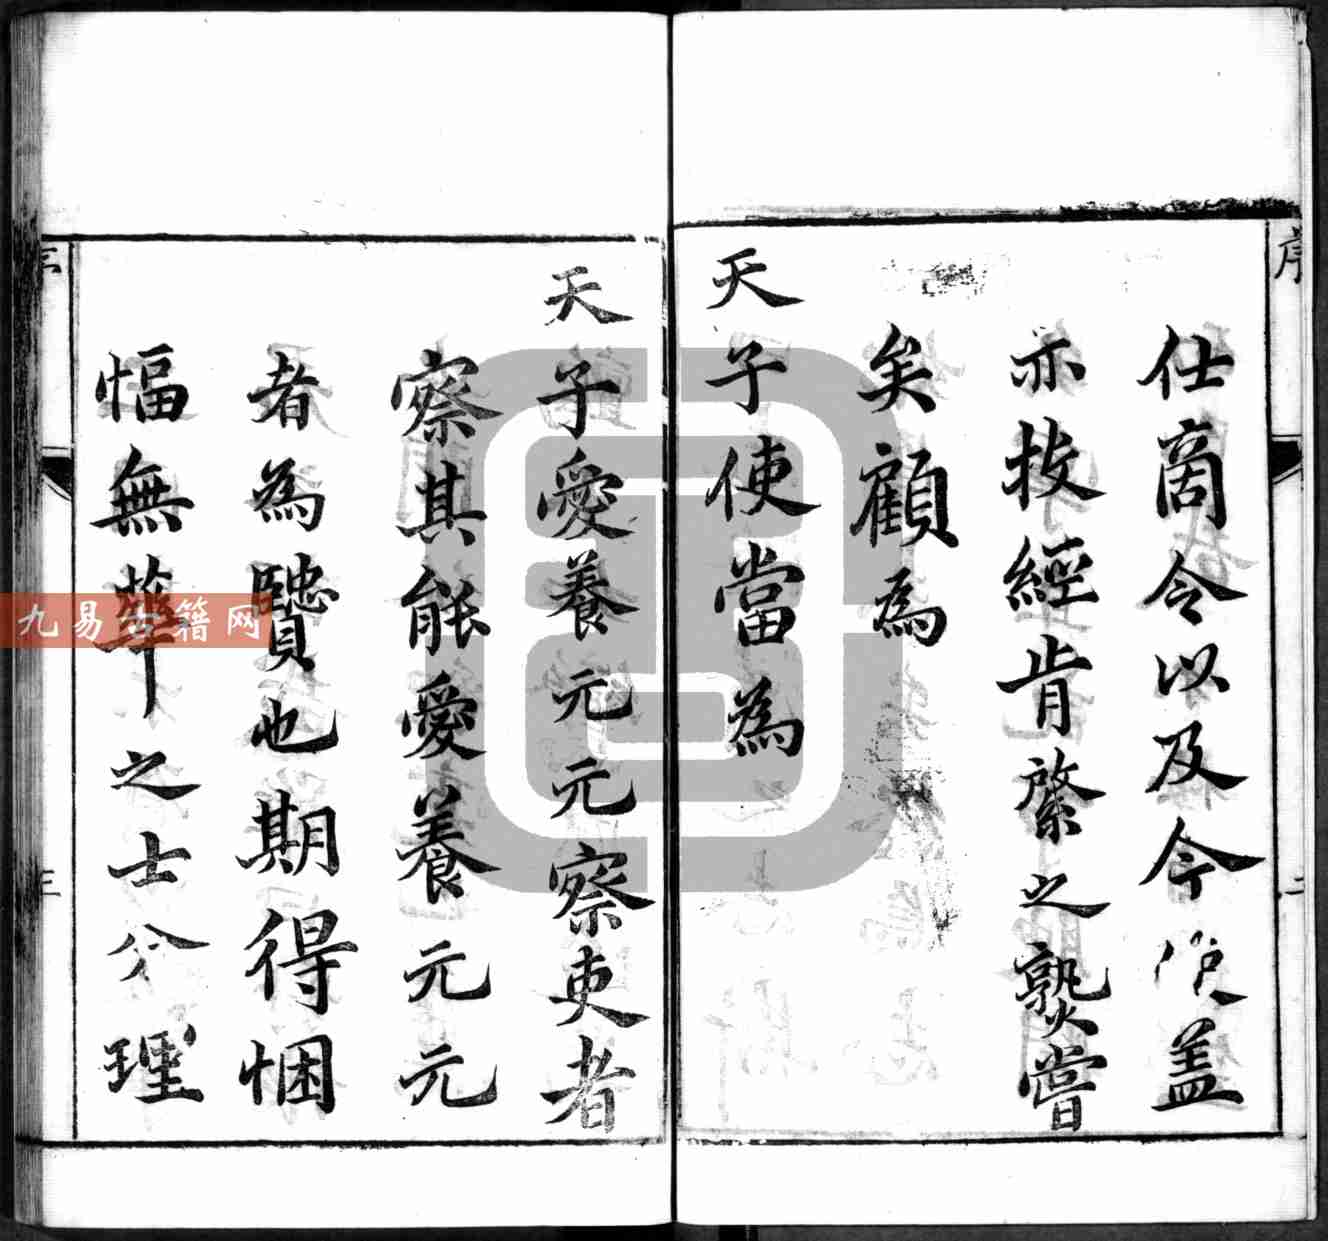 序
二
仕商令以及今盖
亦技經肯綮之熟嘗
矣顧為
天子使當為
天子愛養元元察吏者
察其能愛養元元
者為也期得悃
愊無華之士分理
三
九易古籍网